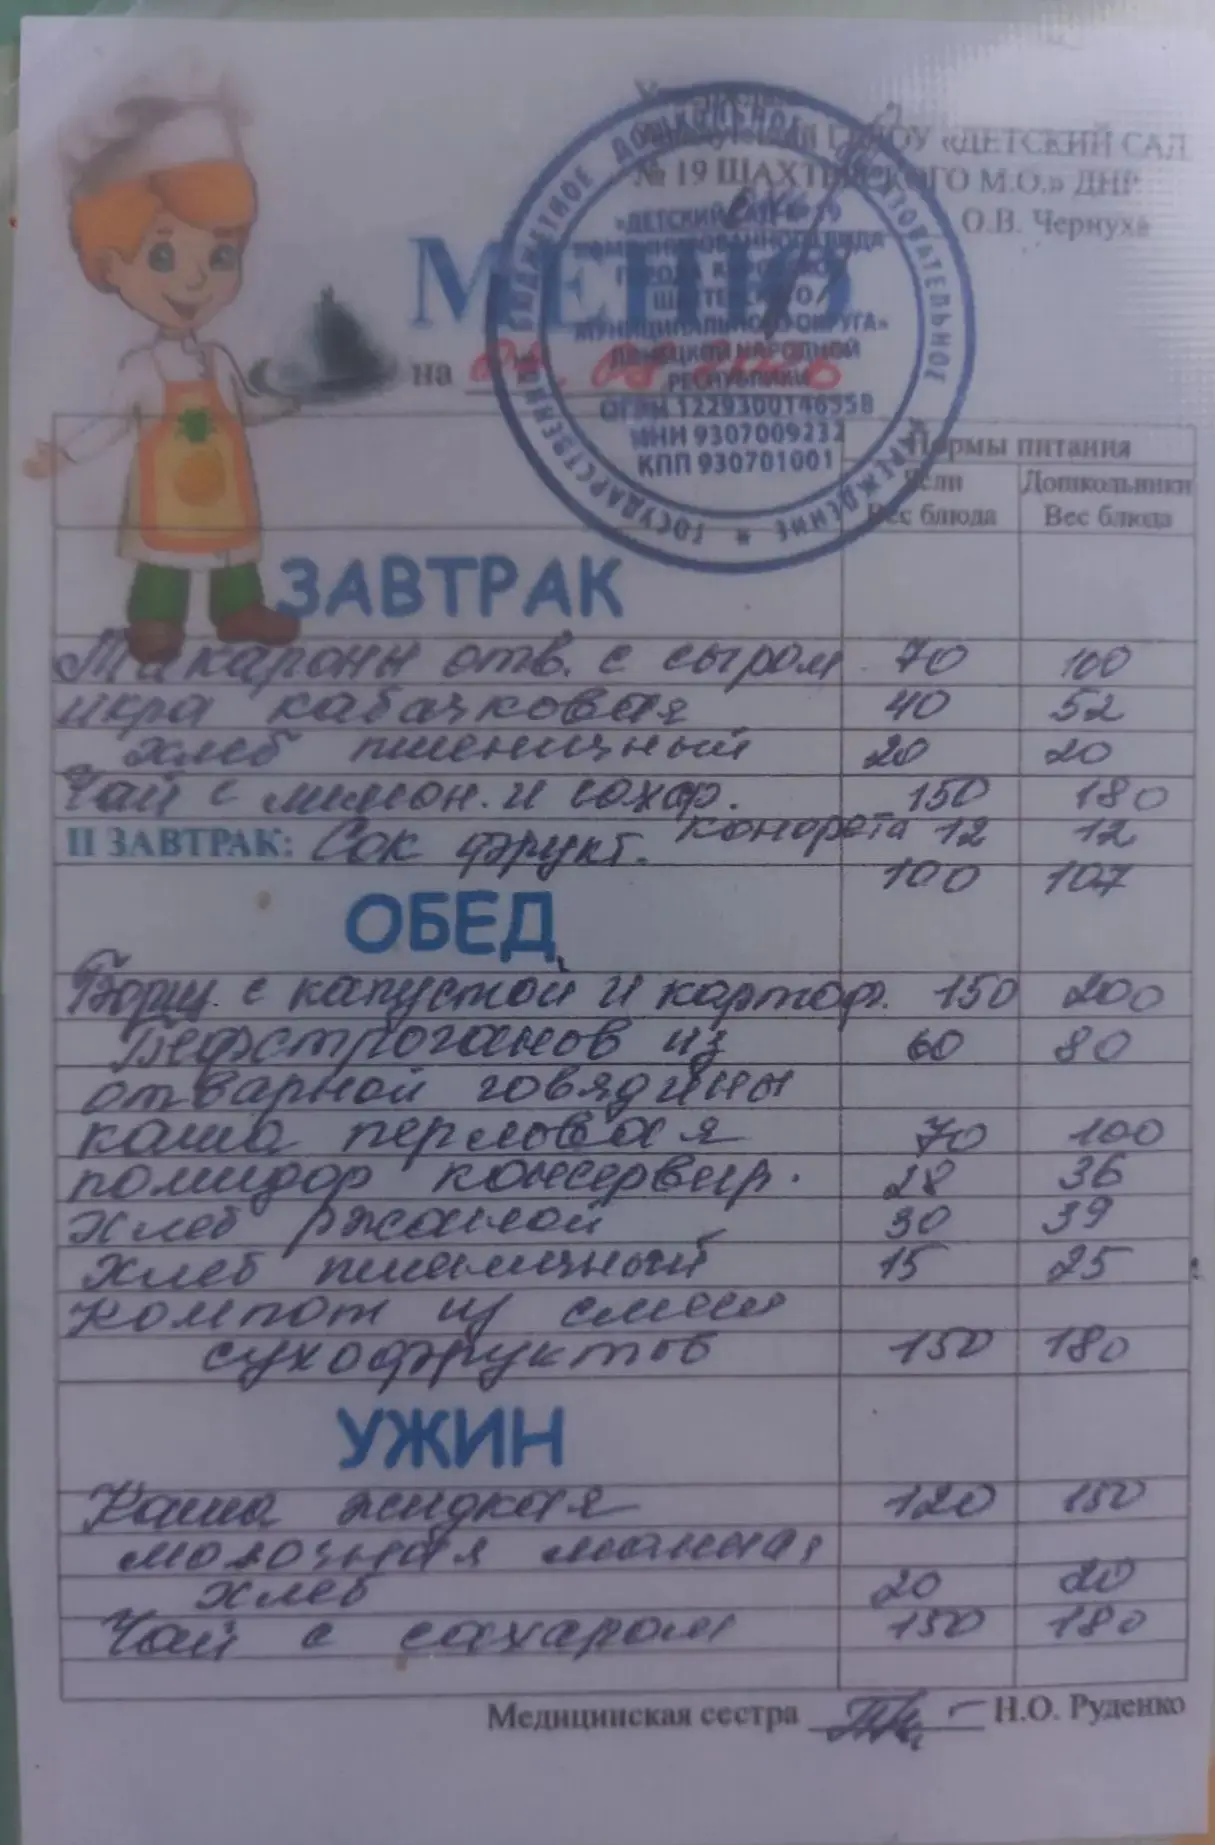 «ДЕТСКИЙ САД
№ 19 ШАХТЕРСКОГО М.О.» ДНР
О.В. Чернуха
МЕНЮ
на
ГОСУДАРСТВЕННОЕ БЮДЖЕТНОЕ ДОШКОЛЬНОЕ ОБРАЗОВАТЕЛЬНОЕ УЧРЕЖДЕНИЕ
«ДЕТСКИЙ САД № 19
КОМБИНИРОВАННОГО ВИДА
ГОРОДА
ШАХТЕРСКОГО
МУНИЦИПАЛЬНОГО ОКРУГА»
ДОНЕЦКОЙ НАРОДНОЙ
РЕСПУБЛИКИ
ОГРН 1229300146558
ИНН 9307009232
КПП 930701001
Нормы питания
Ясли Дошкольники
Вес блюда Вес блюда
ЗАВТРАК
Макароны отв. с сыром 70 100
икра кабачковая 40 52
хлеб пшеничный 20 20
Чай с лимон. и сахар. 150 180
II ЗАВТРАК: Сок фрукт. конфета 12 12
100 107
ОБЕД
Борщ с капустой и картоф. 150 200
Бефстроганов из 60 80
отварной говядины
каша перловая 70 100
помидор консервир. 28 36
хлеб ржаной 30 39
хлеб пшеничный 15 25
Компот из смеси
сухофруктов 150 180
УЖИН
Каша жидкая 120 150
молочная манная
хлеб 20 20
Чай с сахаром 150 180
Медицинская сестра Н.О. Руденко